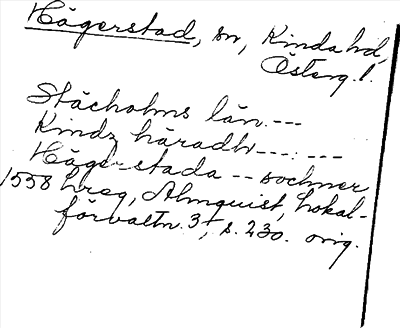 Hägerstad, sn, Kinda hd,
Österg. l.
Stächolms län. ---
Kindz häradh ---:---
Häger-stada -- sochner
1558 Lreg, Almquist, Lokal-
förvaltn. 3, s. 230. orig.